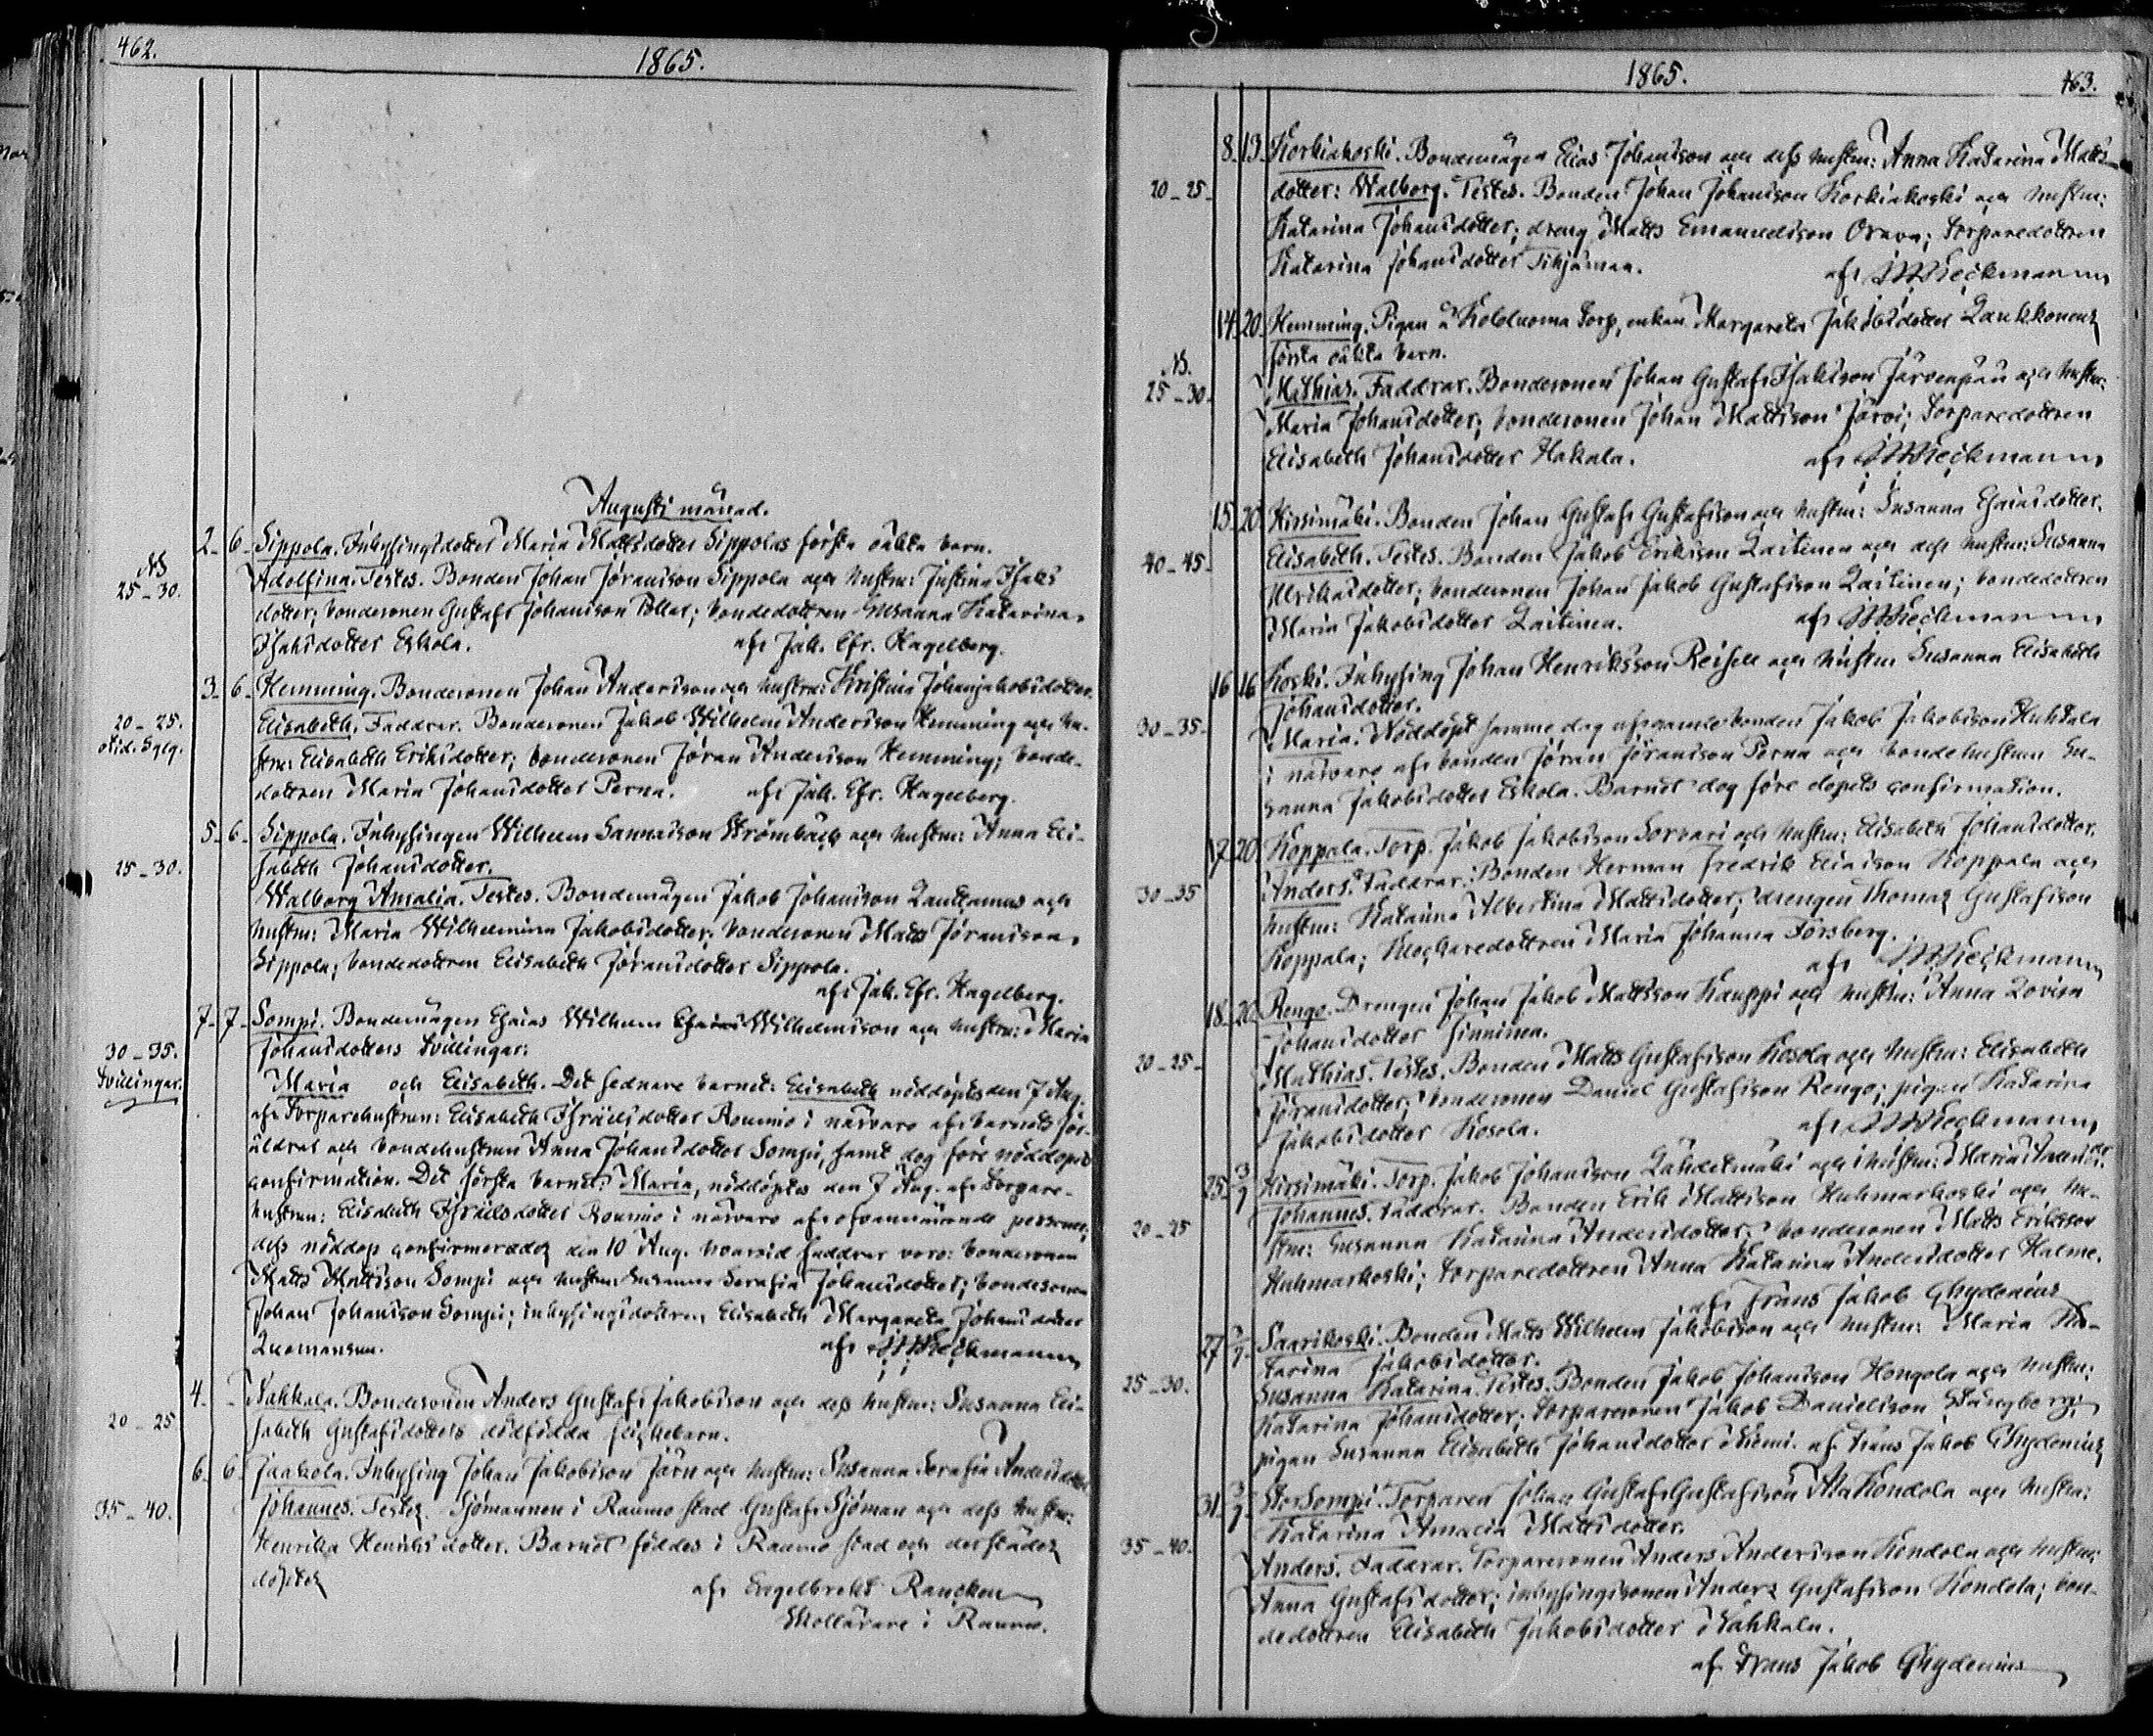 462.
1865.
Augusti månad.
2 - 6 - Sippola. Inhysingsdotter Maria Mattsdotter Sippolas första oäkta barn.
NB
25 - 30.
Adolfina. Testes. Bonden Johan Jöransson Sippola och hustru: Justina Isaks
dotter; bondesonen Gustaf Johansson Pollar; bondedottren Susanna Katarina
Isaksdotter Eskola. af Jak. Efr. Hagelberg.
3 - 6 - Hemming. Bondesonen Johan Andersson och hustru: Kristina Johanjakobsdotter.
20 - 25.
Elisabeth. Faddrar. Bondesonen Jakob Wilhelm Andersson Hemming och hu-
stru: Elisabeth Eriksdotter; bondesonen Jöran Andersson Hemming; bonde-
dottren Maria Johansdotter Perna. af Jak. Efr. Hagelberg.
5 - 6 - Sippola. Inhysingen Wilhelm Samuelson Strömbäck och hustru: Anna Eli-
25 - 30.
sabeth Johansdotter.
Walborg Amalia. Testes. Bondemågen Jakob Johansson Lauttamus och
hustru: Maria Wilhelmina Jakobsdotter; bondesonen Matts Jöransson
Sippola; bondedottren Elisabeth Jöransdotter Sippola.
af Jak. Efr. Hagelberg.
7 - 7 - Sompi. Bondemågen Esaias Wilhelm Wilhelmsson och hustru: Maria
30 - 35.
Johansdotters tvillingar:
Tvillingar.
Maria och Elisabeth. Det sednare barnet: Elisabeth nöddöptes den 7 Aug.
af Torparehustrun: Elisabeth Israelsdotter Roumio i närvaro af barnets för-
äldrar och bondehustrun Anna Johansdotter Sompi, samt dog före nöddopets
confirmation. Det första barnet: Maria, nöddöptes den 7 Aug. af Torpare-
hustrun: Elisabeth Israelsdotter Roumio i närvaro af ofvannämnde personer,
dess nöddop confirmerades den 10 Aug. hvarvid faddrar voro: bondesonen
Matts Mattsson Sompi och hustru Susanna Serafia Johansdotter; bondesonen
Johan Johansson Sompi; inhysingsdottren Elisabeth Margareta Johansdotter
Luomansuu. af Wieckmann
4 - - Nahkala. Bondesonen Anders Gustaf Jakobsson och dess hustru: Susanna Eli-
20 - 25
sabeth Gustafsdotters dödfödda flickebarn.
6 - 6 - Jaakola. Inhysing Johan Jakobsson Järn och hustru: Susanna Serafia Andersdotter
35 - 40.
Johannes. Testes. Sjömannen i Raumo stad Gustaf Sjöman och dess hustru:
Henrika Henriksdotter. Barnet föddes i Raumo stad och derstädes
döptes af Engelbrekt Rancken
Skollärare i Raumo.
1865.
463.
8 - 13 - Korkiakoski. Bondemågen Elias Johansson och dess hustru: Anna Katarina Matts-
20 - 25 -
dotter: Walborg. Testes. Bonden Johan Johansson Korkiakoski och hustru:
Katarina Johansdotter; dreng Matts Emanuelsson Orava; Torparedottren
Katarina Johansdotter. af Wieckmann
14 - 20 - Hemming. Pigan å Kolduoma Torp, enkan Margareta Jakobsdotter Laukkonens
första oäkta barn.
NB.
25 - 30 -
Mathias. Faddrar. Bondesonen Johan Gustaf Isaksson Järvenpää och hustru:
Maria Johansdotter; bondesonen Johan Mattsson Järvi; Torparedottren
Elisabeth Johansdotter Hakala. af Wieckmann
15 - 20 - Kirsimäki. Bonden Johan Gustaf Gustafsson och hustru: Susanna Esaiasdotter.
40 - 45 -
Elisabeth. Testes. Bonden Jakob Eriksson Laitinen och dess hustru: Susanna
Ulrikasdotter; bondesonen Johan Jakob Gustafsson Laitinen; bondedottren
Maria Jakobsdotter Laitinen. af Wieckmann
16 16 Koski. Inhysing Johan Henriksson Reisell och hustru Susanna Elisabeth
Johansdotter.
30 - 35 -
Maria. Nöddöpt samma dag af gamle bonden Jakob Jakobsson Huhtala
i närvaro af bonden Jöran Jöransson Perna och bondehustrun Su-
sanna Jakobsdotter Eskola. Barnet dog före dopets confirmation.
17 20 Koppala. Torp. Jakob Jakobsson Sorvari och hustru: Elisabeth Johansdotter.
30 - 35
Anders. Faddrar. Bonden Herman Fredrik Eliasson Koppala och
hustru: Katarina Albertina Mattsdotter; drengen Thomas Gustafsson
Koppala; Klockaredottren Maria Johanna Forsberg.
af Wieckmann
18 - 20 Rengo. Drengen Johan Jakob Mattsson Kauppi och hustru: Anna Lovisa
Johansdotter Sinninen.
20 - 25 -
Mathias. Testes. Bonden Matts Gustafsson Kosola och hustru: Elisabeth
Jöransdotter; bondesonen Daniel Gustafsson Rengo; pigan Katarina
Jakobsdotter Kosola. af Wieckmann
25 - 3/9 Kirsimäki. Torp. Jakob Johansson Lähdetmäki och hustru: Maria Andersdr.
20 - 25
Johannes. Faddrar. Bonden Erik Mattsson Huhmarkoski och hu-
stru: Susanna Katarina Andersdotter; bondesonen Matts Eriksson
Huhmarkoski; Torparedottren Anna Katarina Andersdotter Halme.
af Frans Jakob Chydenius
27 3/9 - Saarikoski. Bonden Matts Wilhelm Jakobsson och hustru: Maria Ka-
tarina Jakobsdotter.
25 - 30.
Susanna Katarina. Testes. Bonden Jakob Johansson Hongola och hustru:
Katarina Johansdotter; Torparesonen Jakob Danielsson Stångberg;
pigan Susanna Elisabeth Johansdotter Niemi. af Frans Jakob Chydenius
31 - 3/9 - StorSompi. Torparen Johan Gustaf Gustafsson AlaKondola och hustru:
Katarina Amalia Mattsdotter.
35 - 40.
Anders. Faddrar. Torparesonen Anders Andersson Kondola och hustru:
Anna Gustafsdotter; inhysingssonen Anders Gustafsson Kondola; bon-
dedottren Elisabeth Jakobsdotter Nahkala.
af Frans Jakob Chydenius